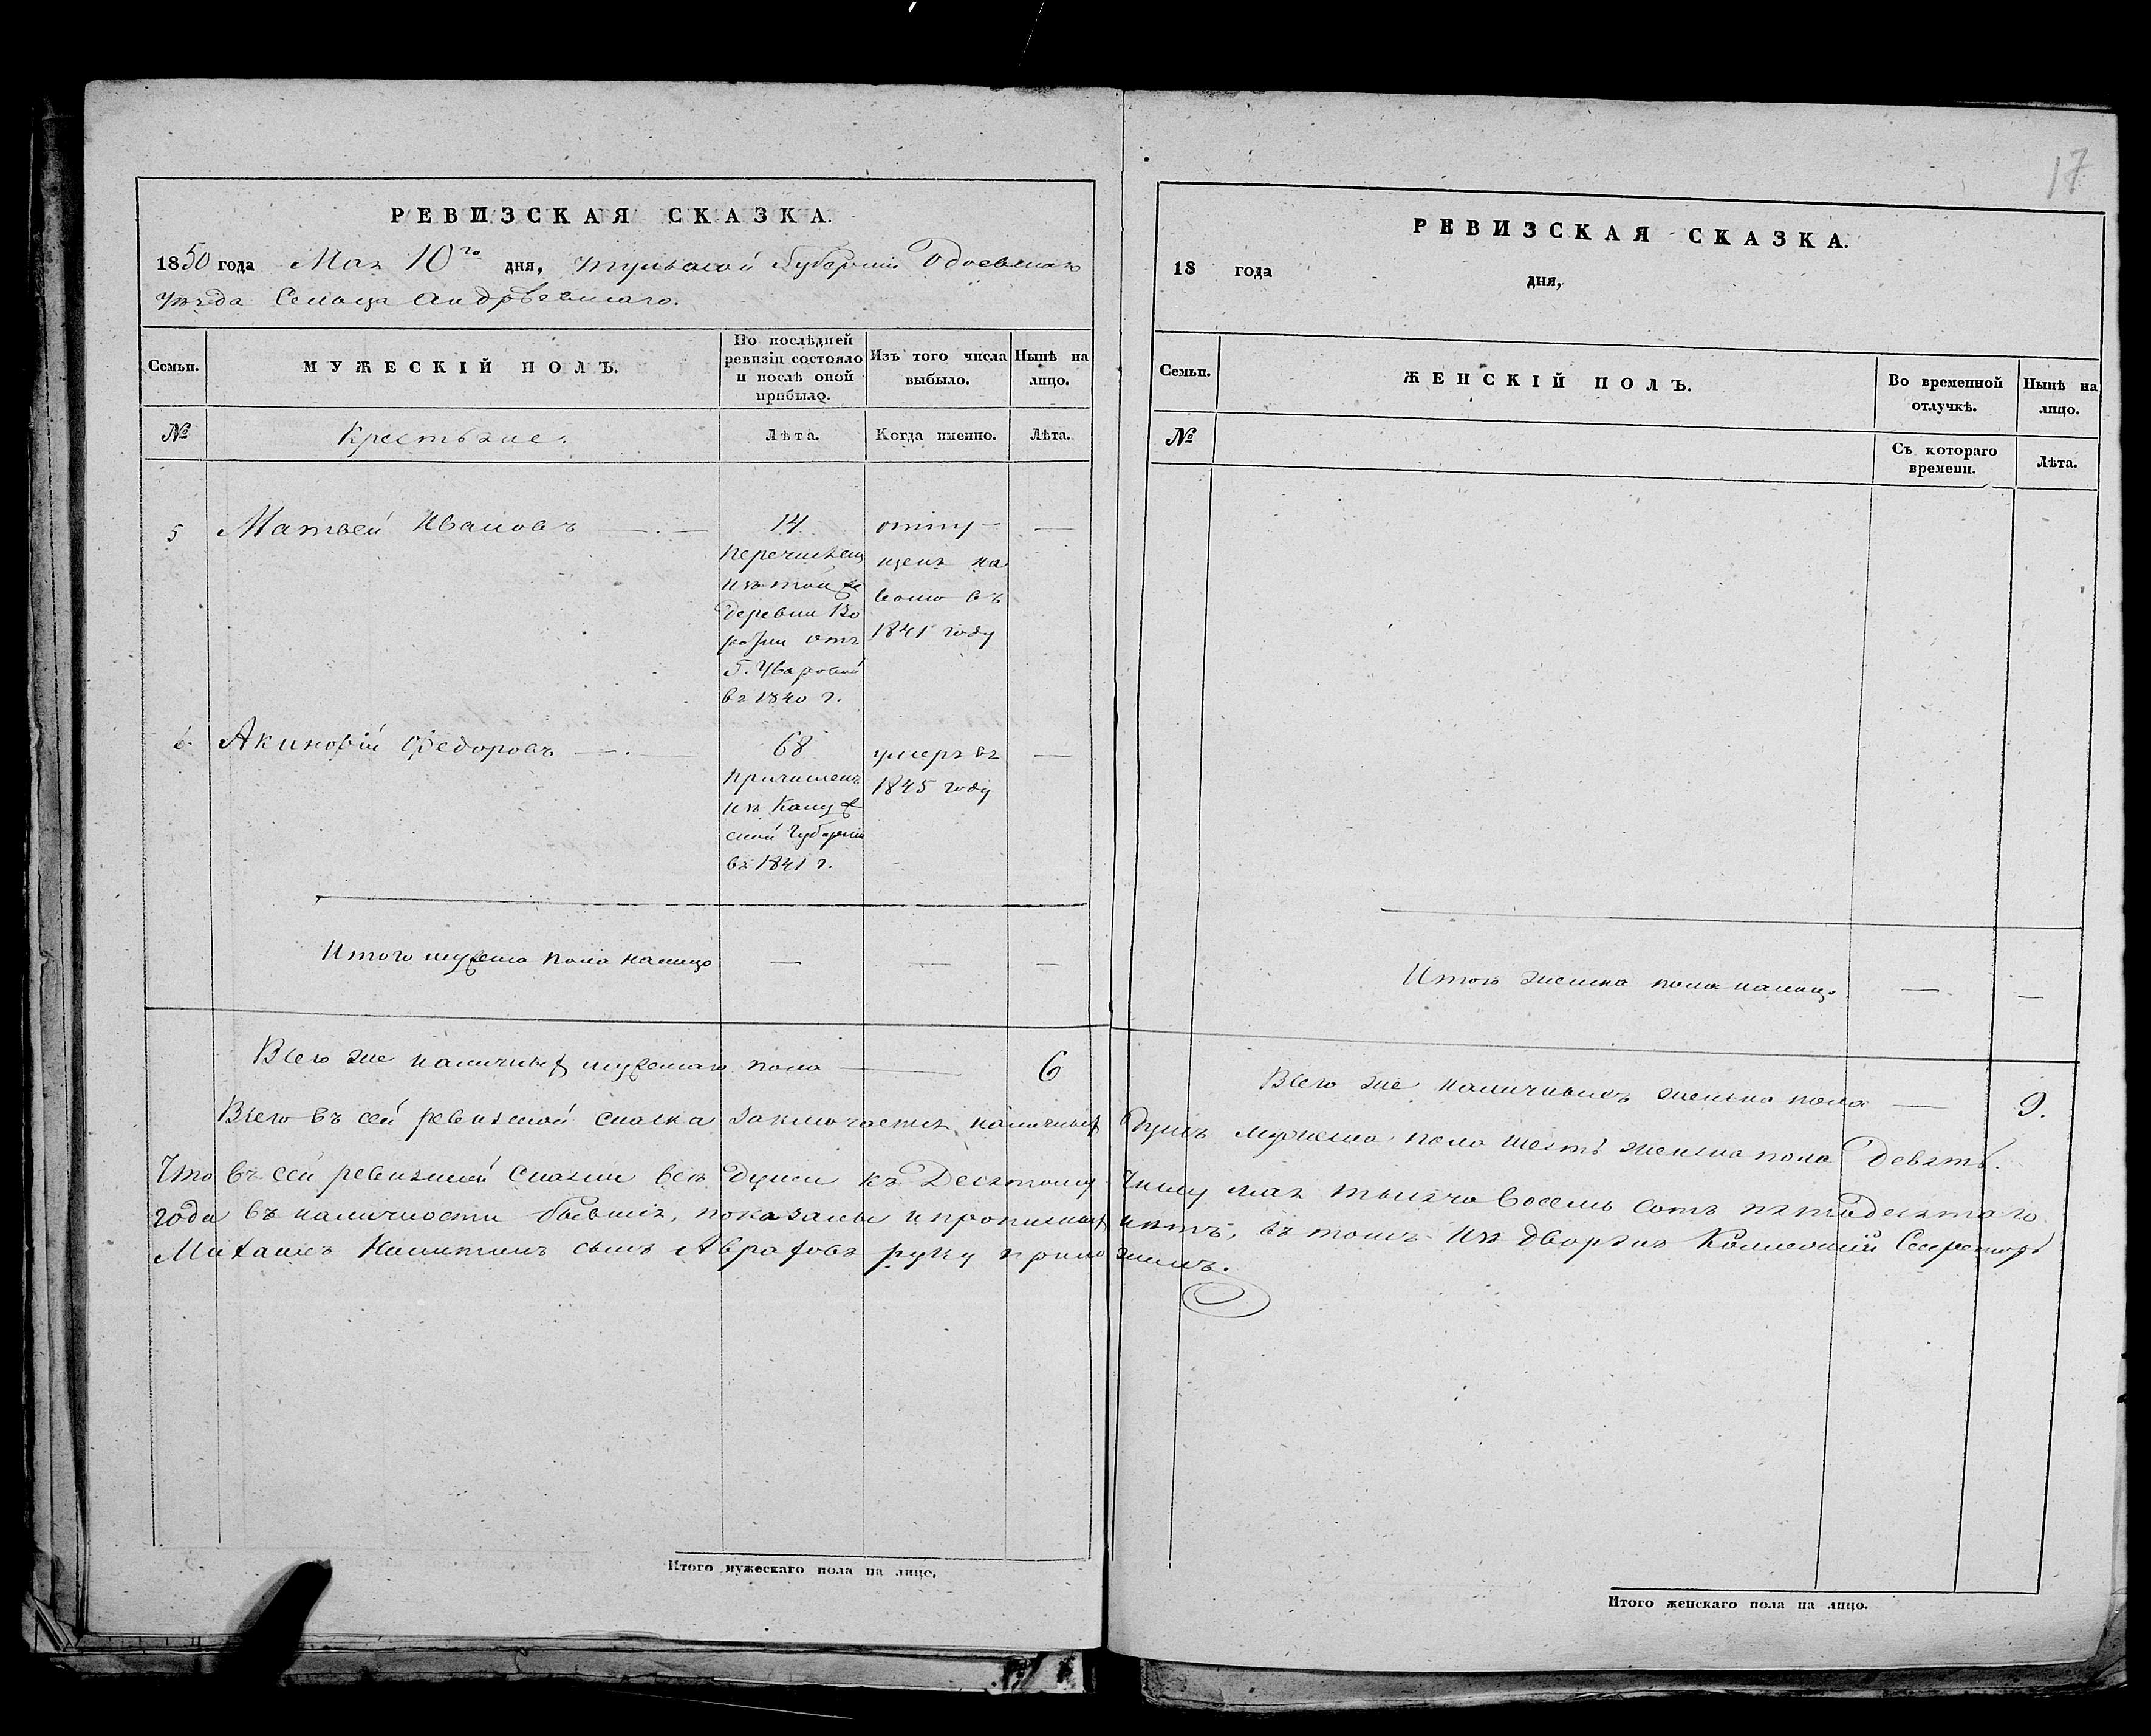 17
РЕВИЗСКАЯ СКАЗКА.
1850 года Мая 10го дня, Тульской Губернии Одоевскаго
уѣзда Сельца Андрѣевскаго.
Семьи.
МУЖЕСКІЙ ПОЛЪ.
По послѣдней
ревизіи состояло
и послѣ оной
прибыло.
Изъ того числа
выбыло.
Нынѣ на
лицо.
№
Крестьяне.
Лѣта.
Когда именно.
Лѣта.
5
Матвей Ивановъ
14
перечислен
изъ той же
деревни
отъ
Г. Уваровой
въ 1840 г.
отпу-
щенъ на
волю въ
1841 году
6.
Федоровъ
68
причисленъ
изъ Калуж
ской Губерніи
въ 1841 г.
умеръ въ
1845 году
Итого мужеска пола налицо
Всего же наличныхъ мужескаго пола 6
Всего въ сей ревизской сказкѣ заключается наличныхъ
Что въ сей ревизской сказки всѣ души къ Десятому
года въ наличности бывшіе, показаны и прописныхъ
Михаилъ Никитинъ сынъ руку прило
Итого мужескаго пола на лицо.
РЕВИЗСКАЯ СКАЗКА.
18 года дня,
Семьи.
ЖЕНСКІЙ ПОЛЪ.
Во временной
отлучкѣ.
Нынѣ на
лицо.
№
Съ котораго
времени.
Лѣта.
Итого женска пола налицо
Всего же наличныхъ женска пола 9.
душъ мужеска пола шесть женска пола девять.
числу мая тысяча восемь сотъ пятидесятаго
нѣтъ, въ томъ изъ дворянъ Коллежскій Секретарь
жилъ.
Итого женскаго пола на лицо.